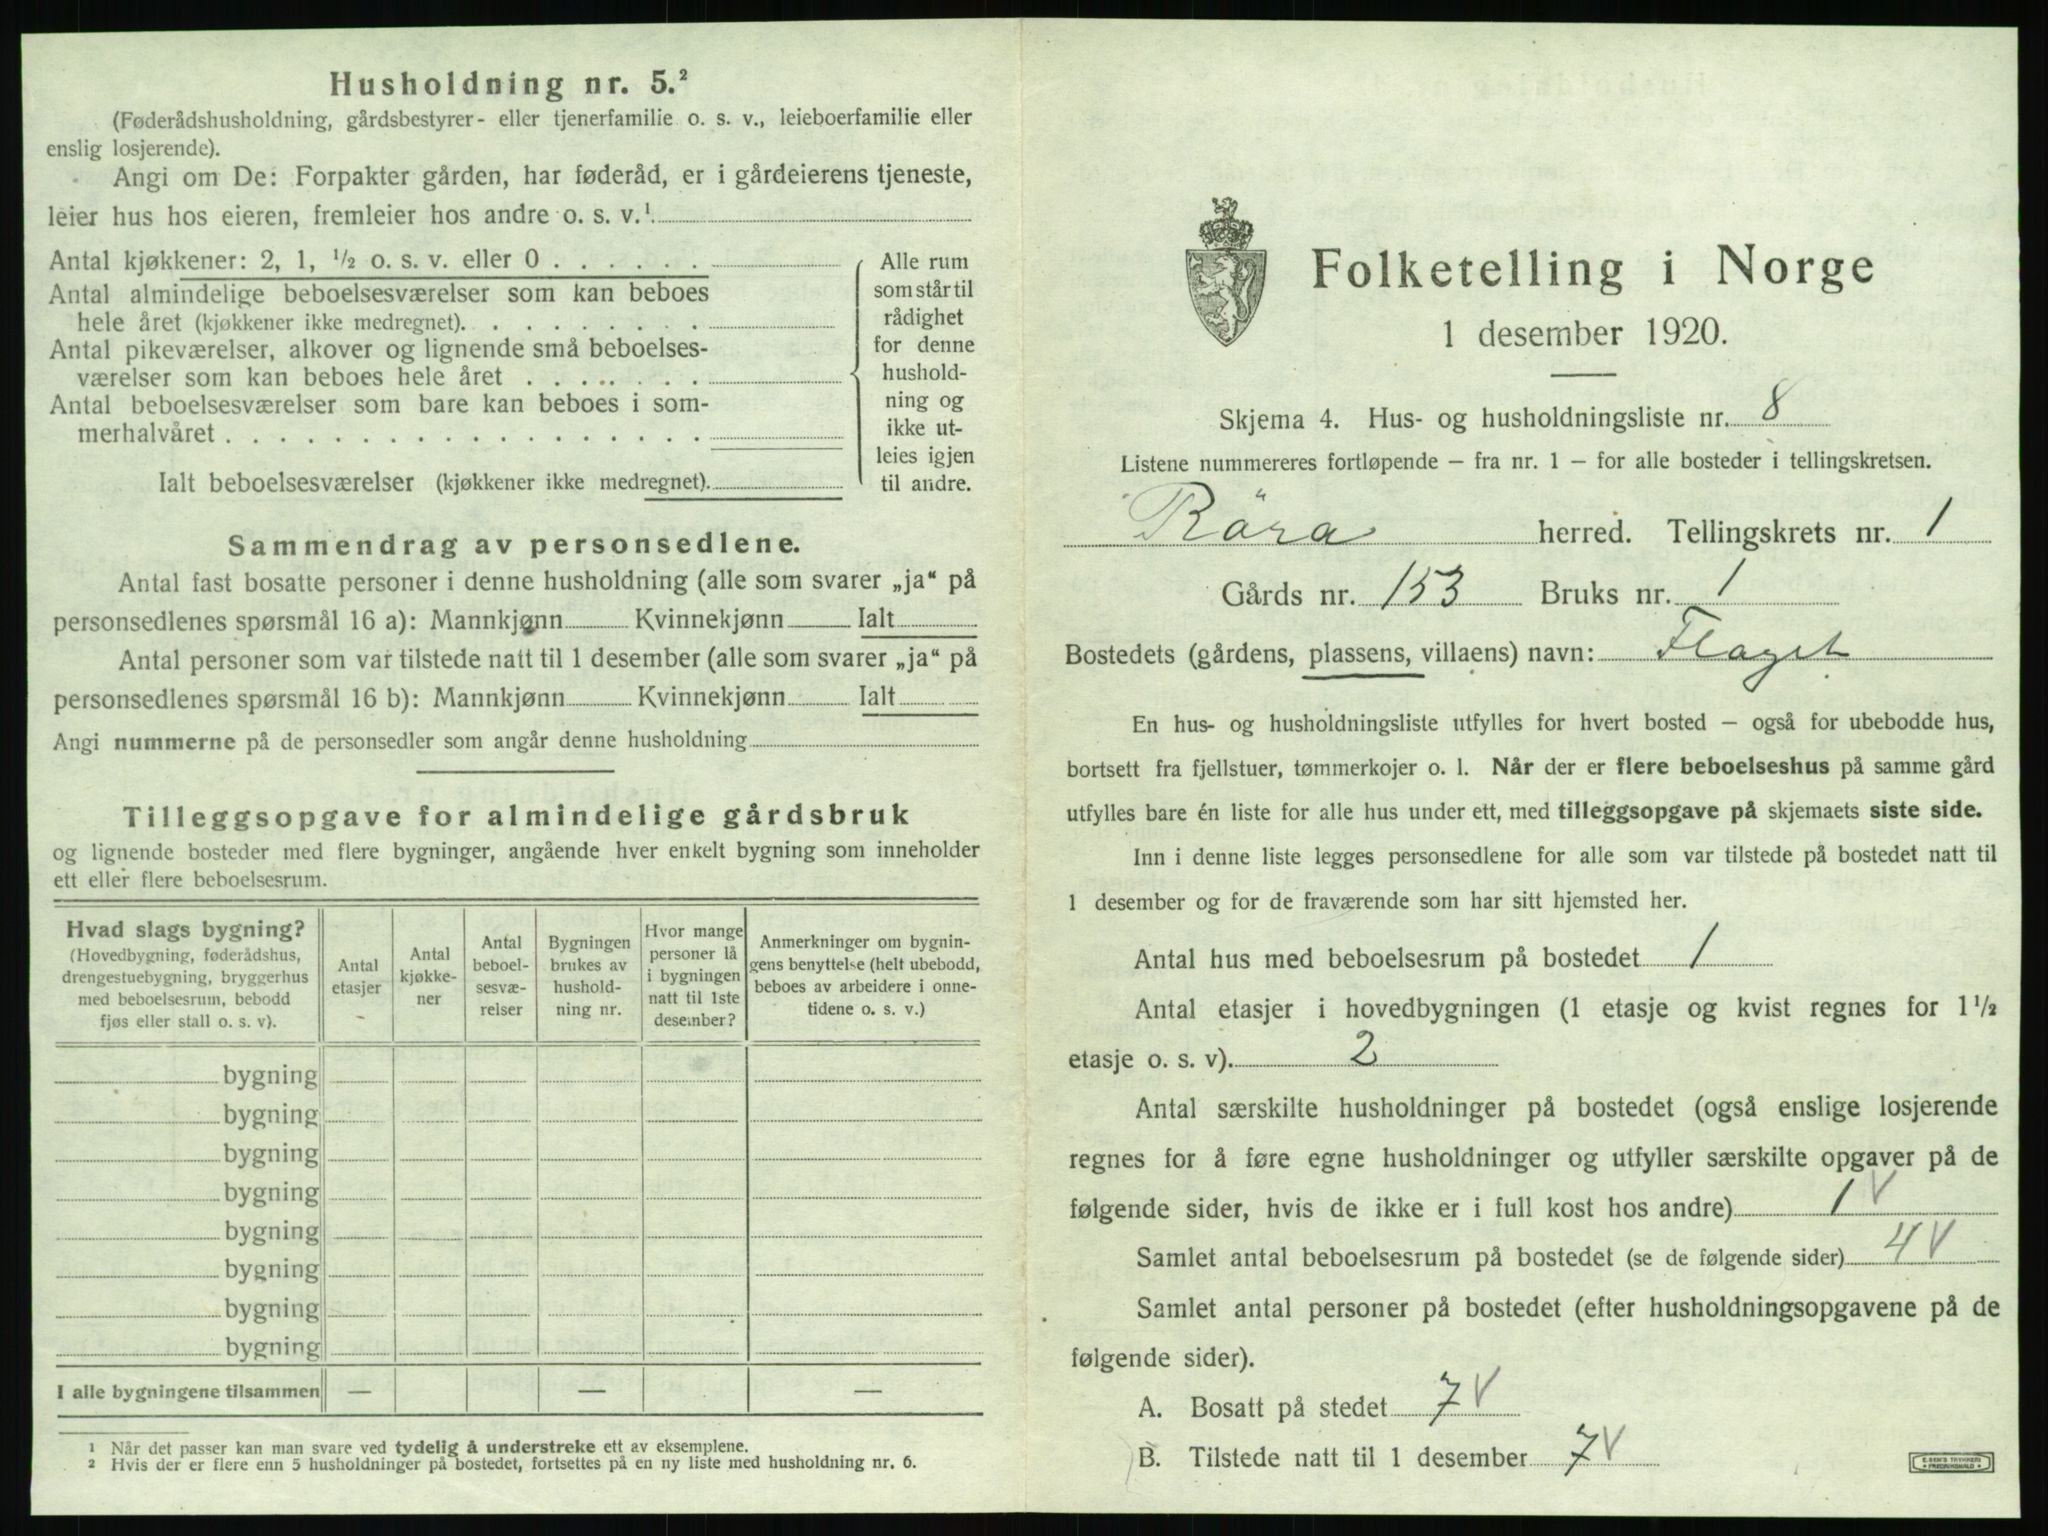 Husholdning nr. 5.²
(Føderådshusholdning, gårdsbestyrer- eller tjenerfamilie o. s. v., leieboerfamilie eller
enslig losjerende).
Angi om De: Forpakter gården, har føderåd, er i gårdeierens tjeneste,
leier hus hos eieren, fremleier hos andre o. s. v.¹
Antal kjøkkener: 2, 1, ½ o. s. v. eller 0 . . . . . .
Antal almindelige beboelsesværelser som kan beboes
hele året (kjøkkener ikke medregnet). . . . . . . . .
Antal pikeværelser, alkover og lignende små beboelses-
værelser som kan beboes hele året . . . . . . .
Antal beboelsesværelser som bare kan beboes i som-
merhalvåret . . . . . . . . . . . . . . . . . .
Ialt beboelsesværelser (kjøkkener ikke medregnet).
Alle rum
som står til
rådighet
for denne
hushold-
ning og
ikke ut-
leies igjen
til andre.
Sammendrag av personsedlene.
Antal fast bosatte personer i denne husholdning (alle som svarer „ja“ på
personsedlenes spørsmål 16 a): Mannkjønn Kvinnekjønn Ialt
Antal personer som var tilstede natt til 1 desember (alle som svarer „ja“ på
personsedlenes spørsmål 16 b): Mannkjønn Kvinnekjønn Ialt
Angi nummerne på de personsedler som angår denne husholdning
Tilleggsopgave for almindelige gårdsbruk
og lignende bosteder med flere bygninger, angående hver enkelt bygning som inneholder
ett eller flere beboelsesrum.
Hvad slags bygning?
(Hovedbygning, føderådshus,
drengestuebygning, bryggerhus
med beboelsesrum, bebodd
fjøs eller stall o. s. v).
Antal
etasjer
Antal
kjøkke-
ner
Antal
beboel-
sesvæ-
relser
Bygningen
brukes av
hushold-
ning nr.
Hvor mange
personer lå
i bygningen
natt til 1ste
desember?
Anmerkninger om bygnin-
gens benyttelse (helt ubebodd,
beboes av arbeidere i onne-
tidene o. s. v.)
bygning
bygning
bygning
bygning
bygning
bygning
bygning
bygning
I alle bygningene tilsammen — — —
¹ Når det passer kan man svare ved tydelig å understreke ett av eksemplene.
² Hvis der er flere enn 5 husholdninger på bostedet, fortsettes på en ny liste med husholdning nr. 6.
Folketelling i Norge
1 desember 1920.
Skjema 4. Hus- og husholdningsliste nr. 8
Listene nummereres fortløpende – fra nr. 1 – for alle bosteder i tellingskretsen.
Röra herred. Tellingskrets nr. 1
Gårds nr. 153 Bruks nr. 1
Bostedets (gårdens, plassens, villaens) navn: Flaget
En hus- og husholdningsliste utfylles for hvert bosted – også for ubebodde hus,
bortsett fra fjellstuer, tømmerkojer o. l. Når der er flere beboelseshus på samme gård
utfylles bare én liste for alle hus under ett, med tilleggsopgave på skjemaets siste side.
Inn i denne liste legges personsedlene for alle som var tilstede på bostedet natt til
1 desember og for de fraværende som har sitt hjemsted her.
Antal hus med beboelsesrum på bostedet 1
Antal etasjer i hovedbygningen (1 etasje og kvist regnes for 1½
etasje o. s. v). 2
Antal særskilte husholdninger på bostedet (også enslige losjerende
regnes for å føre egne husholdninger og utfyller særskilte opgaver på de
følgende sider, hvis de ikke er i full kost hos andre) 1 V
Samlet antal beboelsesrum på bostedet (se de følgende sider) 4 V
Samlet antal personer på bostedet (efter husholdningsopgavene på de
følgende sider).
A. Bosatt på stedet 7 V
B. Tilstede natt til 1 desember 7 V
E. SEM'S TRYKKERI
FREDRIKSHALD